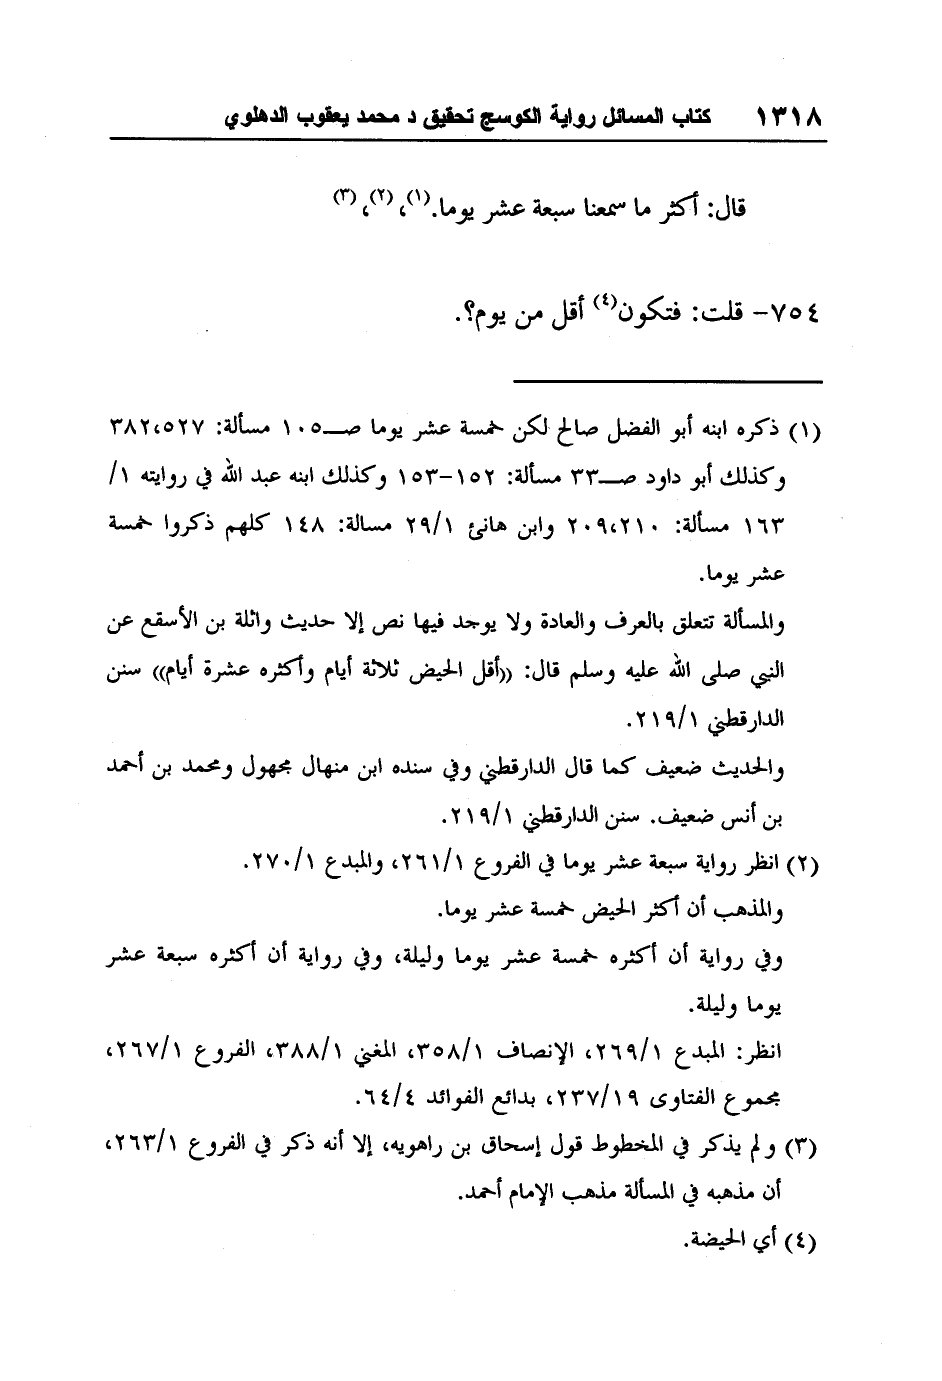 ١٣١٨ كتاب المسائل رواية الكوسج تحقيق د محمد يعقوب الدهلوي
قال: أكثر ما سمعنا سبعة عشر يوما.(١)، (٢)، (٣)
٧٥٤- قلت: فتكون(٤) أقل من يوم؟.
(١) ذكره ابنه أبو الفضل صالح لكن خمسة عشر يوما صــ١٠٥ مسألة: ٣٨٢،٥٢٧
وكذلك أبو داود صــ٣٣ مسألة: ١٥٢-١٥٣ وكذلك ابنه عبد الله في روايته ١/
١٦٣ مسألة: ٢٠٩،٢١٠ وابن هانئ ٢٩/١ مسالة: ١٤٨ كلهم ذكروا خمسة
عشر يوما.
والمسألة تتعلق بالعرف والعادة ولا يوجد فيها نص إلا حديث واثلة بن الأسقع عن
النبي صلى الله عليه وسلم قال: ((أقل الحيض ثلاثة أيام وأكثره عشرة أيام)) سنن
الدارقطني ٢١٩/١.
والحديث ضعيف كما قال الدارقطني وفي سنده ابن منهال مجهول ومحمد بن أحمد
بن أنس ضعيف. سنن الدارقطني ٢١٩/١.
(٢) انظر رواية سبعة عشر يوما في الفروع ٢٦١/١، والمبدع ٢٧٠/١.
والمذهب أن أكثر الحيض خمسة عشر يوما.
وفي رواية أن أكثره خمسة عشر يوما وليلة، وفي رواية أن أكثره سبعة عشر
يوما وليلة.
انظر: المبدع ٢٦٩/١، الإنصاف ٣٥٨/١، المغني ٣٨٨/١، الفروع ٢٦٧/١،
مجموع الفتاوى ٢٣٧/١٩، بدائع الفوائد ٦٤/٤.
(٣) ولم يذكر في المخطوط قول إسحاق بن راهويه، إلا أنه ذكر في الفروع ٢٦٣/١،
أن مذهبه في المسألة مذهب الإمام أحمد.
(٤) أي الحيضة.